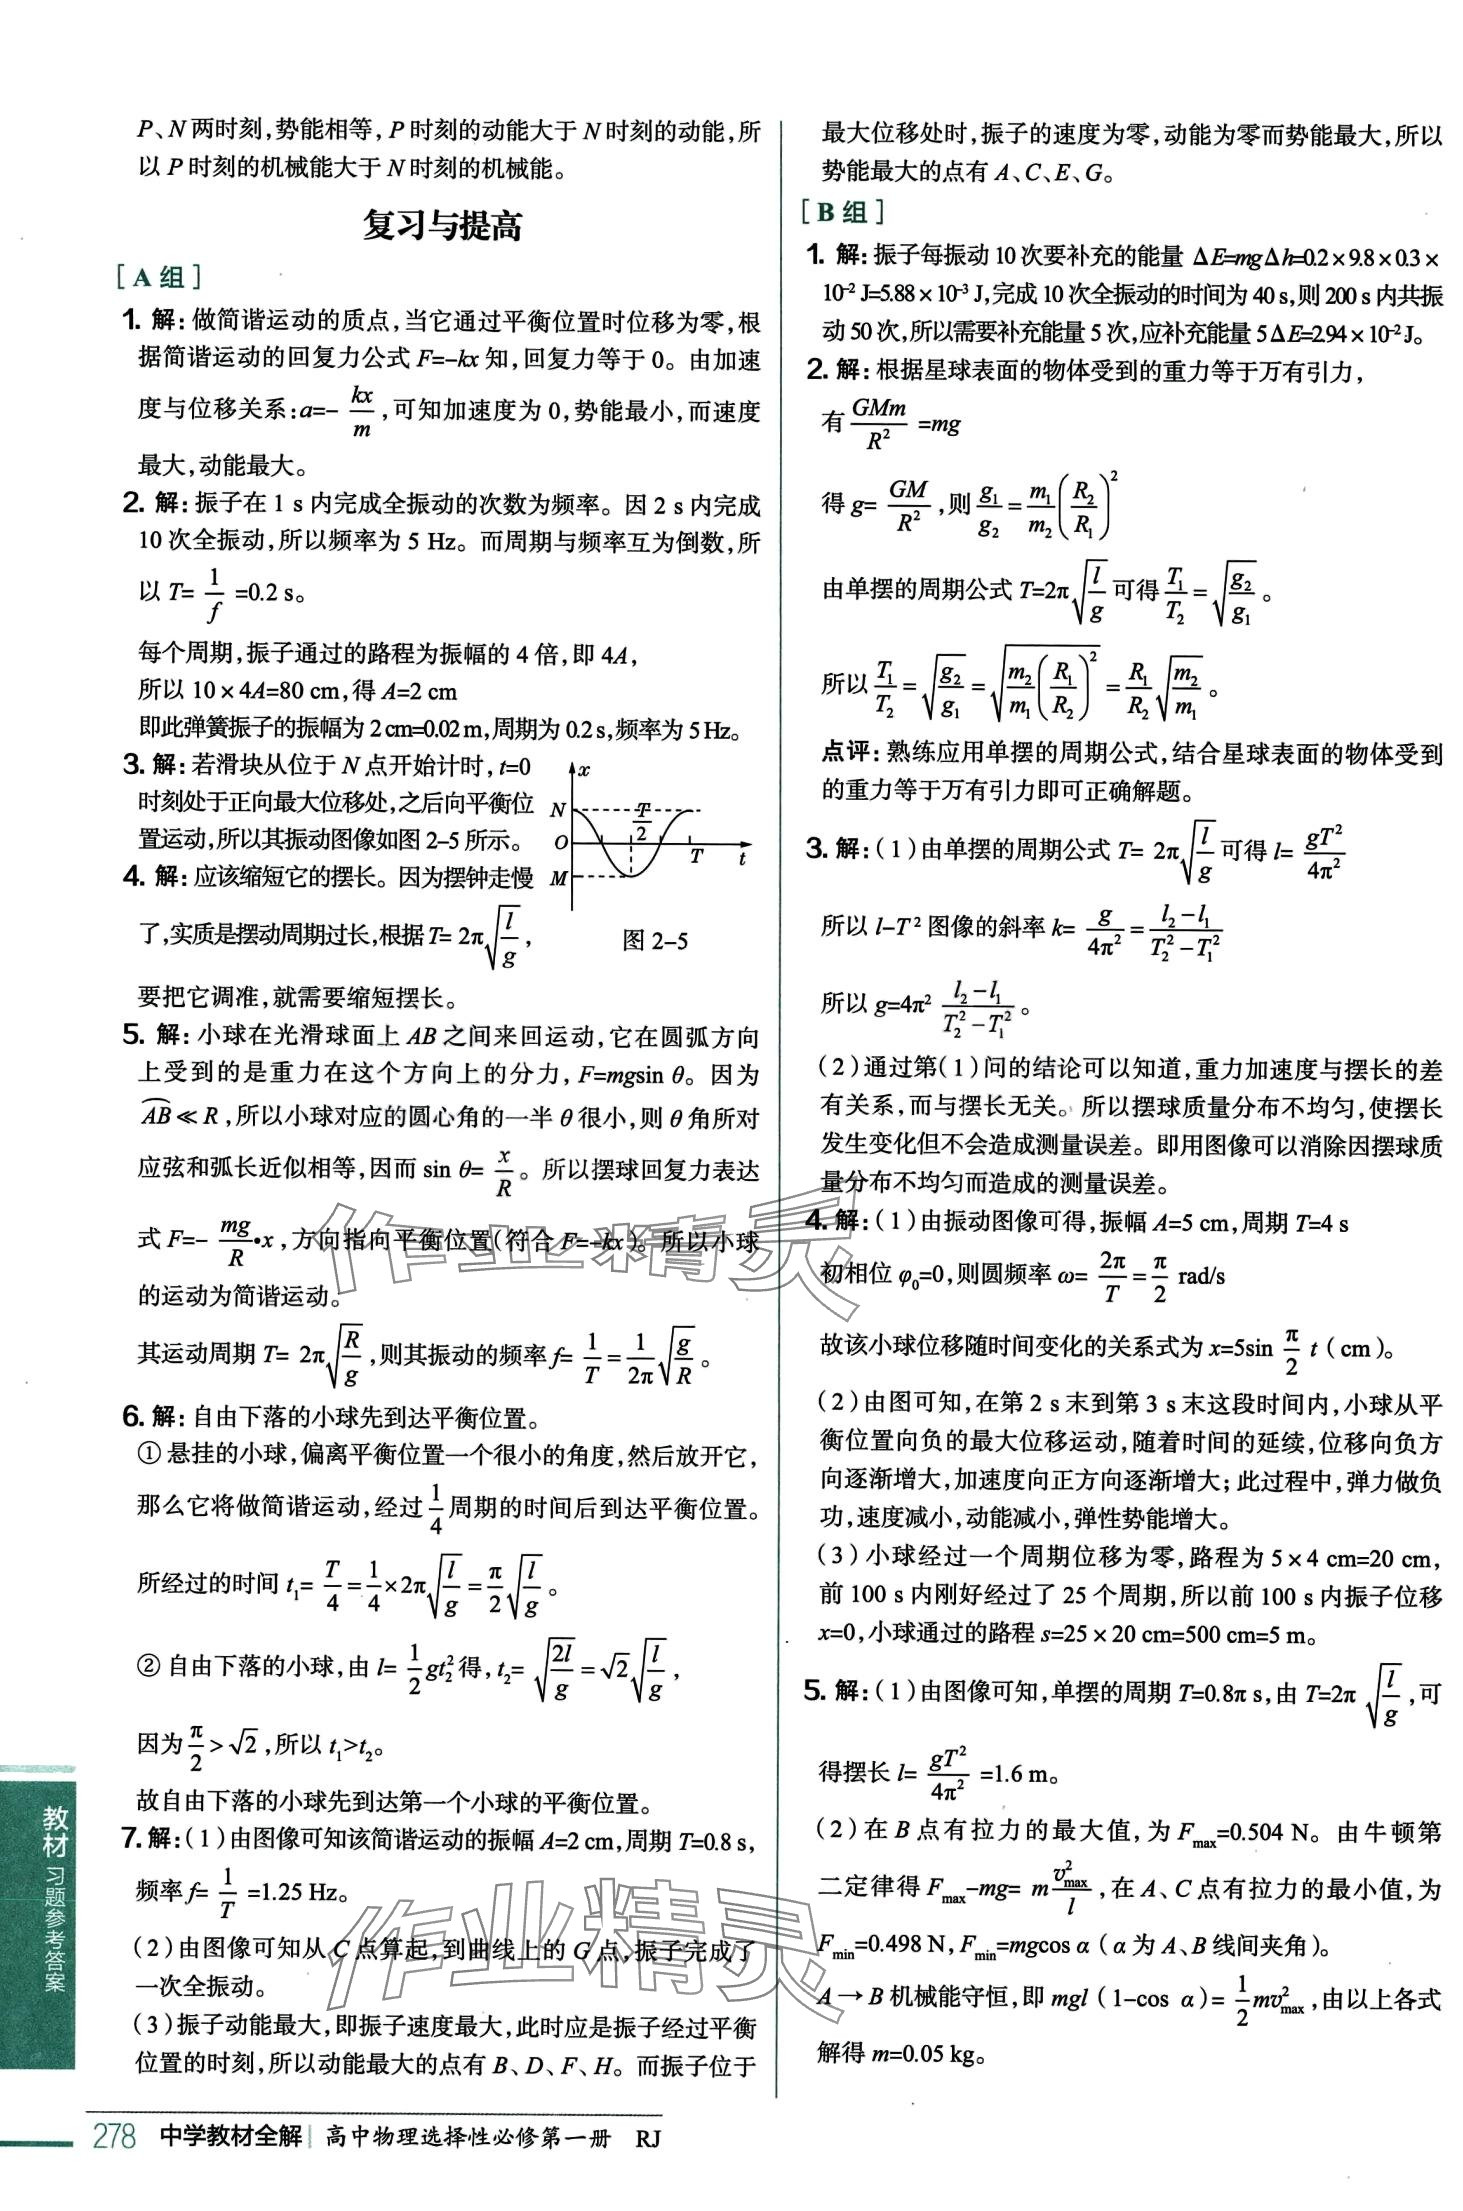 P、N两时刻,势能相等,P时刻的动能大于N时刻的动能,所
以P时刻的机械能大于N时刻的机械能。
复习与提高
[A组]
1. 解:做简谐运动的质点,当它通过平衡位置时位移为零,根
据简谐运动的回复力公式F=-kx知,回复力等于0。由加速
度与位移关系:a=-kx/m,可知加速度为0,势能最小,而速度
最大,动能最大。
2. 解:振子在1 s内完成全振动的次数为频率。因2 s内完成
10次全振动,所以频率为5 Hz。而周期与频率互为倒数,所
以T=1/f=0.2 s。
每个周期,振子通过的路程为振幅的4倍,即4A,
所以10×4A=80 cm,得A=2 cm
即此弹簧振子的振幅为2 cm=0.02 m,周期为0.2 s,频率为5 Hz。
3. 解:若滑块从位于N点开始计时,t=0
时刻处于正向最大位移处,之后向平衡位
置运动,所以其振动图像如图2-5所示。
x
N
T/2
O
T
t
M
图2-5
4. 解:应该缩短它的摆长。因为摆钟走慢
了,实质是摆动周期过长,根据T=2π√(l/g),
要把它调准,就需要缩短摆长。
5. 解:小球在光滑球面上AB之间来回运动,它在圆弧方向
上受到的是重力在这个方向上的分力,F=mgsin θ。因为
⌒AB≪R,所以小球对应的圆心角的一半θ很小,则θ角所对
应弦和弧长近似相等,因而sin θ=x/R。所以摆球回复力表达
式F=-mg/R·x,方向指向平衡位置(符合F=-kx)。所以小球
的运动为简谐运动。
其运动周期T=2π√(R/g),则其振动的频率f=1/T=1/2π√(g/R)。
6. 解:自由下落的小球先到达平衡位置。
①悬挂的小球,偏离平衡位置一个很小的角度,然后放开它,
那么它将做简谐运动,经过1/4周期的时间后到达平衡位置。
所经过的时间t₁=T/4=1/4×2π√(l/g)=π/2√(l/g)。
②自由下落的小球,由l=1/2gt₂²得,t₂=√(2l/g)=√2√(l/g),
因为π/2>√2,所以t₁>t₂。
故自由下落的小球先到达第一个小球的平衡位置。
7. 解:(1)由图像可知该简谐运动的振幅A=2 cm,周期T=0.8 s,
频率f=1/T=1.25 Hz。
(2)由图像可知从C点算起,到曲线上的G点,振子完成了
一次全振动。
(3)振子动能最大,即振子速度最大,此时应是振子经过平衡
位置的时刻,所以动能最大的点有B、D、F、H。而振子位于
最大位移处时,振子的速度为零,动能为零而势能最大,所以
势能最大的点有A、C、E、G。
[B组]
1. 解:振子每振动10次要补充的能量 ΔE=mgΔh=0.2×9.8×0.3×
10⁻² J=5.88×10⁻³ J,完成10次全振动的时间为40 s,则200 s内共振
动50次,所以需要补充能量5次,应补充能量5ΔE=2.94×10⁻² J。
2. 解:根据星球表面的物体受到的重力等于万有引力,
有GMm/R²=mg
得g=GM/R²,则g₁/g₂=m₁/m₂(R₂/R₁)²
由单摆的周期公式T=2π√(l/g)可得T₁/T₂=√(g₂/g₁)。
所以T₁/T₂=√(g₂/g₁)=√(m₂/m₁(R₁/R₂)²)=R₁/R₂√(m₂/m₁)。
点评:熟练应用单摆的周期公式,结合星球表面的物体受到
的重力等于万有引力即可正确解题。
3. 解:(1)由单摆的周期公式T=2π√(l/g)可得l=gT²/4π²
所以l-T²图像的斜率k=g/4π²=(l₂-l₁)/(T₂²-T₁²)
所以g=4π²(l₂-l₁)/(T₂²-T₁²)。
(2)通过第(1)问的结论可以知道,重力加速度与摆长的差
有关系,而与摆长无关。所以摆球质量分布不均匀,使摆长
发生变化但不会造成测量误差。即用图像可以消除因摆球质
量分布不均匀而造成的测量误差。
4. 解:(1)由振动图像可得,振幅A=5 cm,周期T=4 s
初相位φ₀=0,则圆频率ω=2π/T=π/2 rad/s
故该小球位移随时间变化的关系式为x=5sin π/2 t(cm)。
(2)由图可知,在第2 s末到第3 s末这段时间内,小球从平
衡位置向负的最大位移运动,随着时间的延续,位移向负方
向逐渐增大,加速度向正方向逐渐增大;此过程中,弹力做负
功,速度减小,动能减小,弹性势能增大。
(3)小球经过一个周期位移为零,路程为5×4 cm=20 cm,
前100 s内刚好经过了25个周期,所以前100 s内振子位移
x=0,小球通过的路程s=25×20 cm=500 cm=5 m。
5. 解:(1)由图像可知,单摆的周期T=0.8π s,由T=2π√(l/g),可
得摆长l=gT²/4π²=1.6 m。
(2)在B点有拉力的最大值,为Fmax=0.504 N。由牛顿第
二定律得Fmax-mg=mv²max/l,在A、C点有拉力的最小值,为
Fmin=0.498 N,Fmin=mgcos α(α为A、B线间夹角)。
A→B机械能守恒,即mgl(1-cos α)=1/2mv²max,由以上各式
解得m=0.05 kg。
作业精灵
作业精灵
教材 习题参考答案
278 中学教材全解 | 高中物理选择性必修第一册 RJ